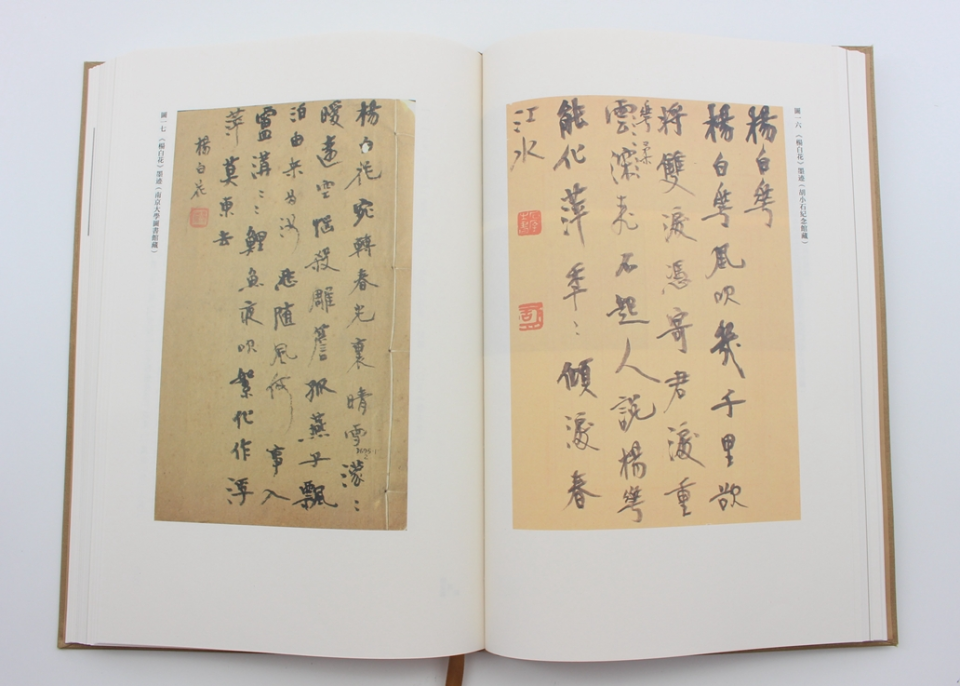 圖一六 《楊白花》墨迹（胡小石紀念館藏）
楊白華
楊白華風吹幾千里欲
將雙淚憑寄君淚重
雲深飛不起人說楊華
能化萍年〻傾淚春
江水
圖一七 《楊白花》墨迹（南京大學圖書館藏）
楊白花宛轉春光裏晴雪濛〻
暖遠空惱殺雕簷孤燕子飄
泊由來易何悲隨風何事入
盧溝〻鯉魚夜吹絮化作浮
萍莫東去
楊白花